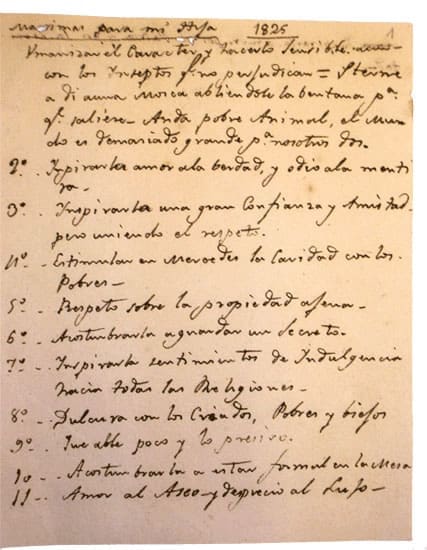 Maximas para mi Hija 1825
1
Umanizar el Caracter y hacerlo sensible aun
con los Ynseptos qe. no perjudican = Sterne
a dicho a una Mosca abriendole la bentana pa.
qe. saliese - Anda pobre Animal, el Mun
do es demaciado grande pa. nosotros dos.
2º.. Ynspirarla amor a la berdad, y odio a la menti
ra.-
3º.. Inspirarla una gran Confianza y Amistad
pero uniendo el respeto.
4º.. Estimular en Mercedes la Caridad con los
Pobres -
5º.. Respeto sobre la propiedad ajena.-
6º.. Acostumbrarla a guardar un Secreto.
7º.. Inspirarla sentimientos de Indulgencia
hacia todas las Religiones.-
8º.. Dulsura con los Criados, Pobres y biejos
9º.. Que able poco y lo presiso.
10.. Acostumbrarla a estar formal en la Mesa
11.. Amor al Aseo - y desprecio al Lujo -